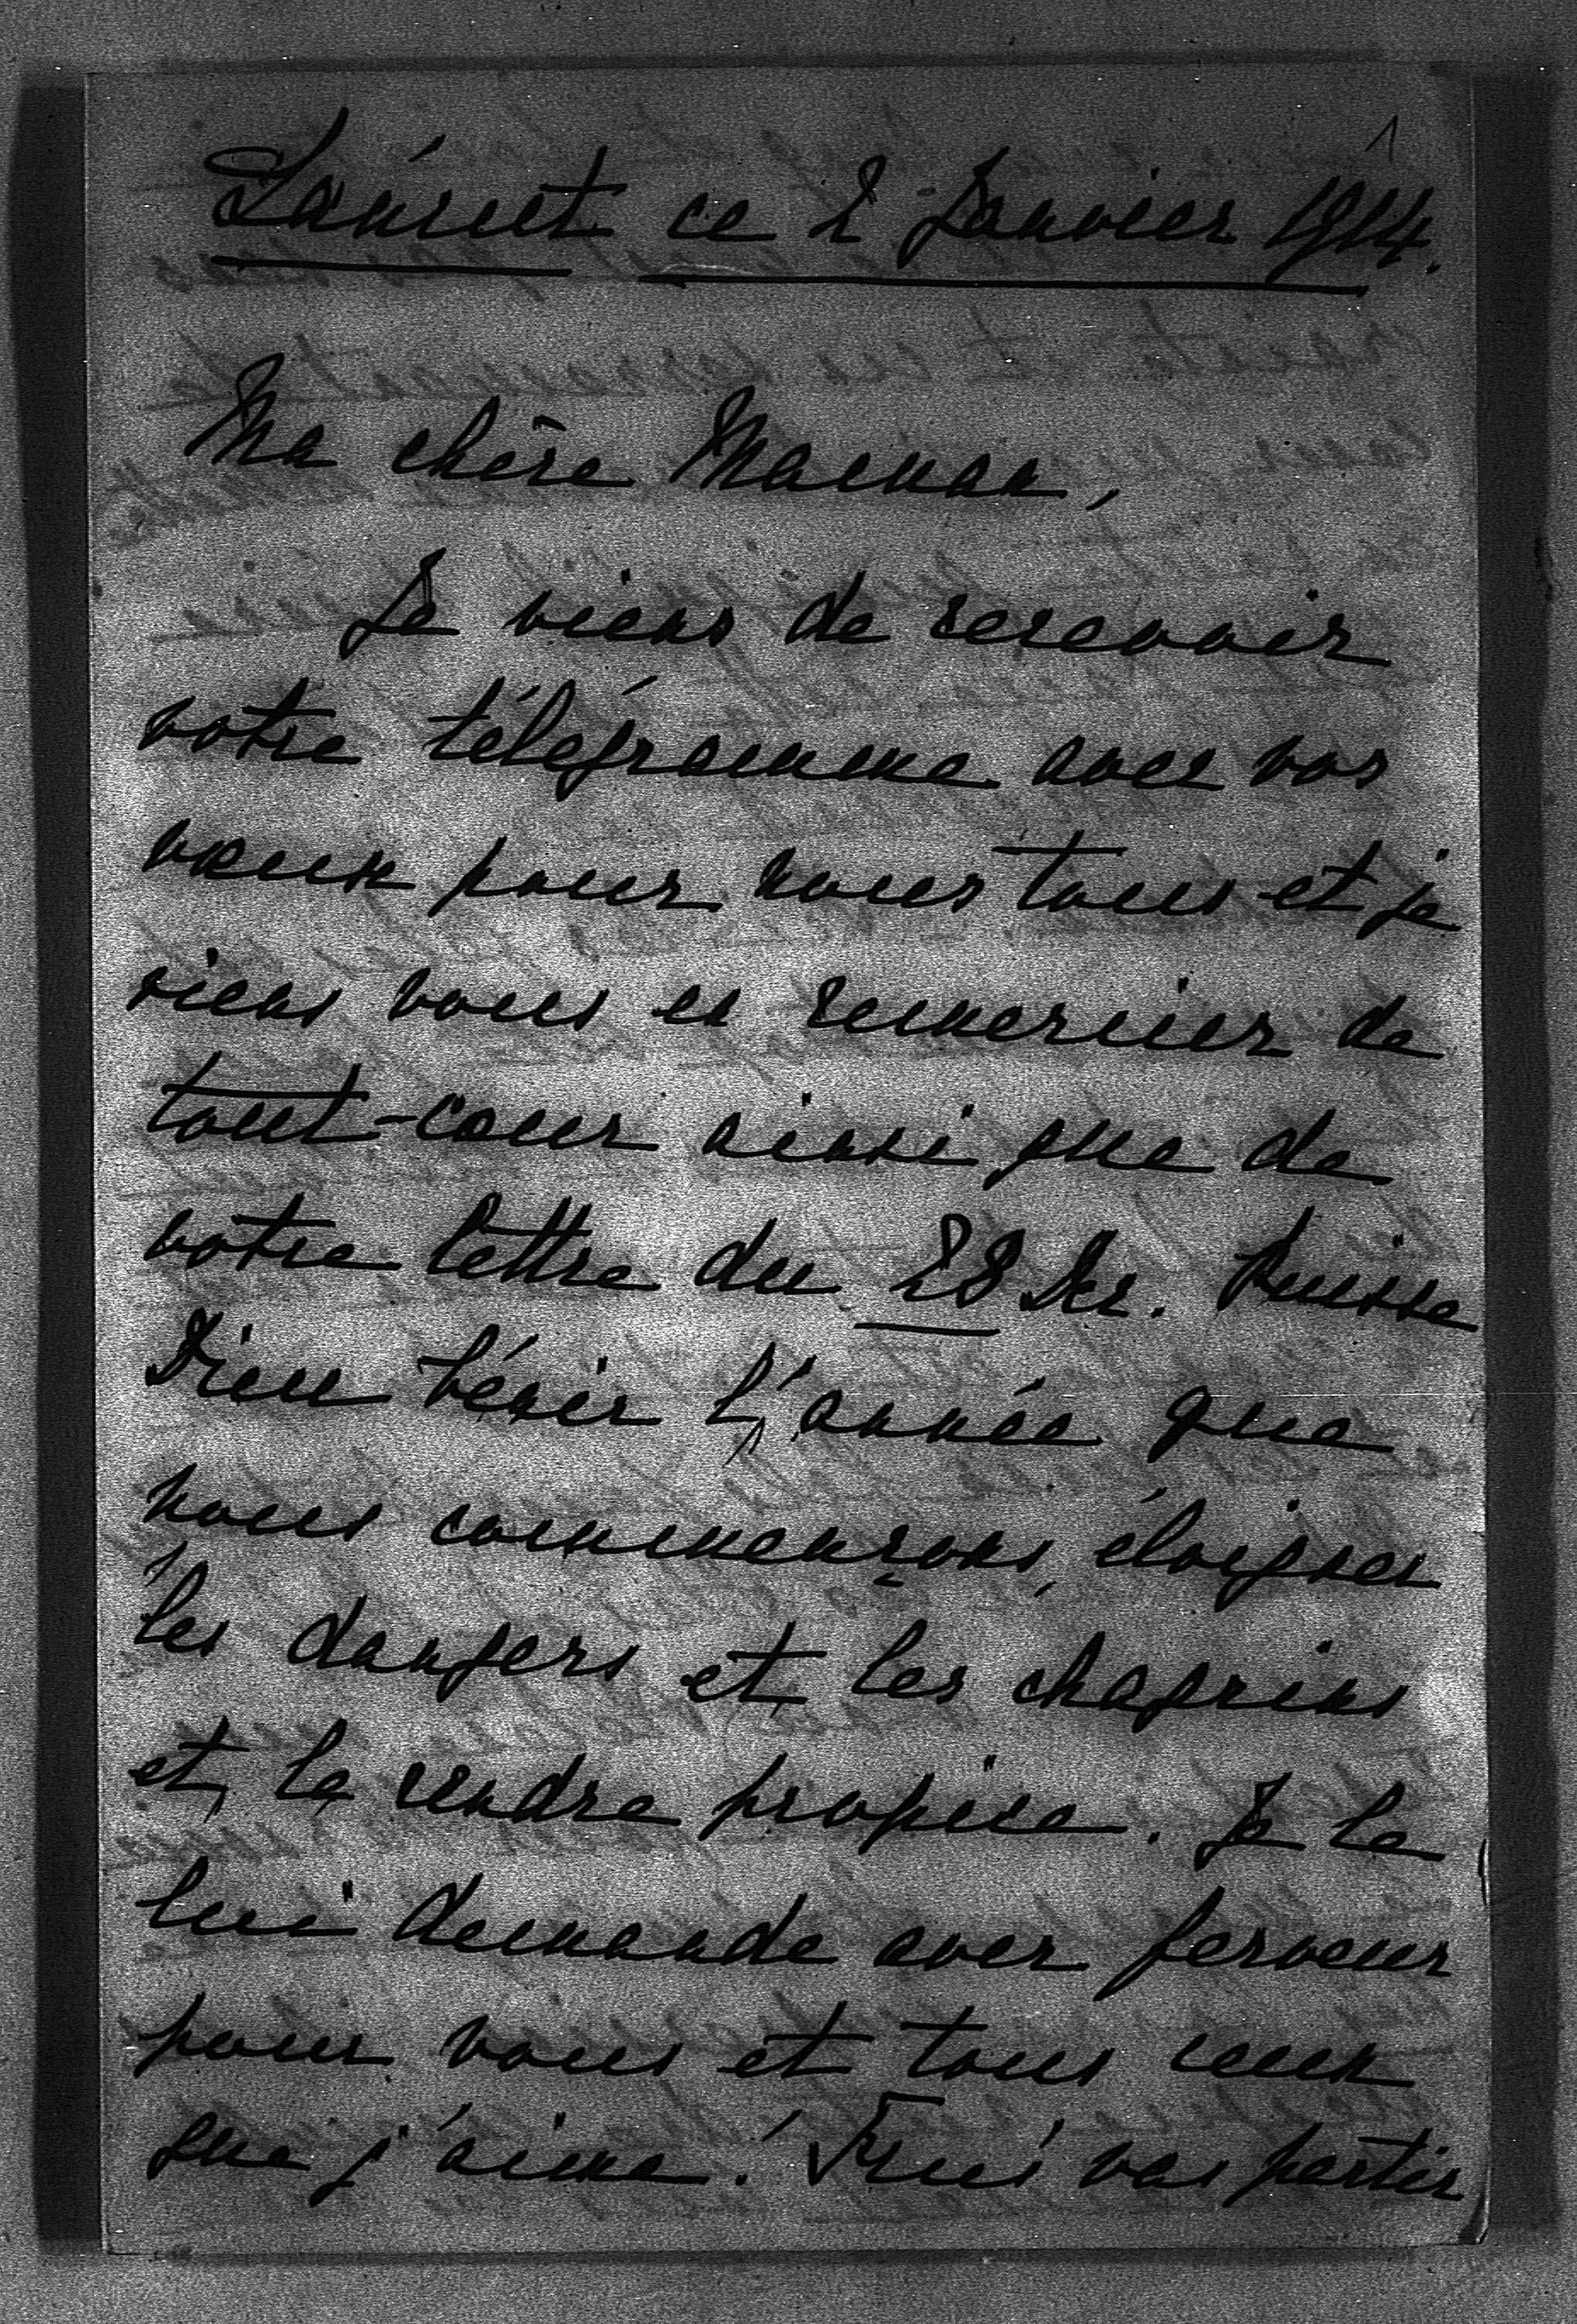 ce 2 Janvier 1914.
Ma chère Maman,
Je viens de recevoir
votre télégramme avec vos
vœux pour nous tous et je
viens vous en remercier de
tout-cœur ainsi que de
votre lettre du 28 Dec. Puisse
Dieu bénir l'année que
nous commençons, éloigner
les dangers et les chagrins
et la rendre propice. Je le
lui demande avec ferveur
pour vous et tous ceux
que j'aime! vas partir